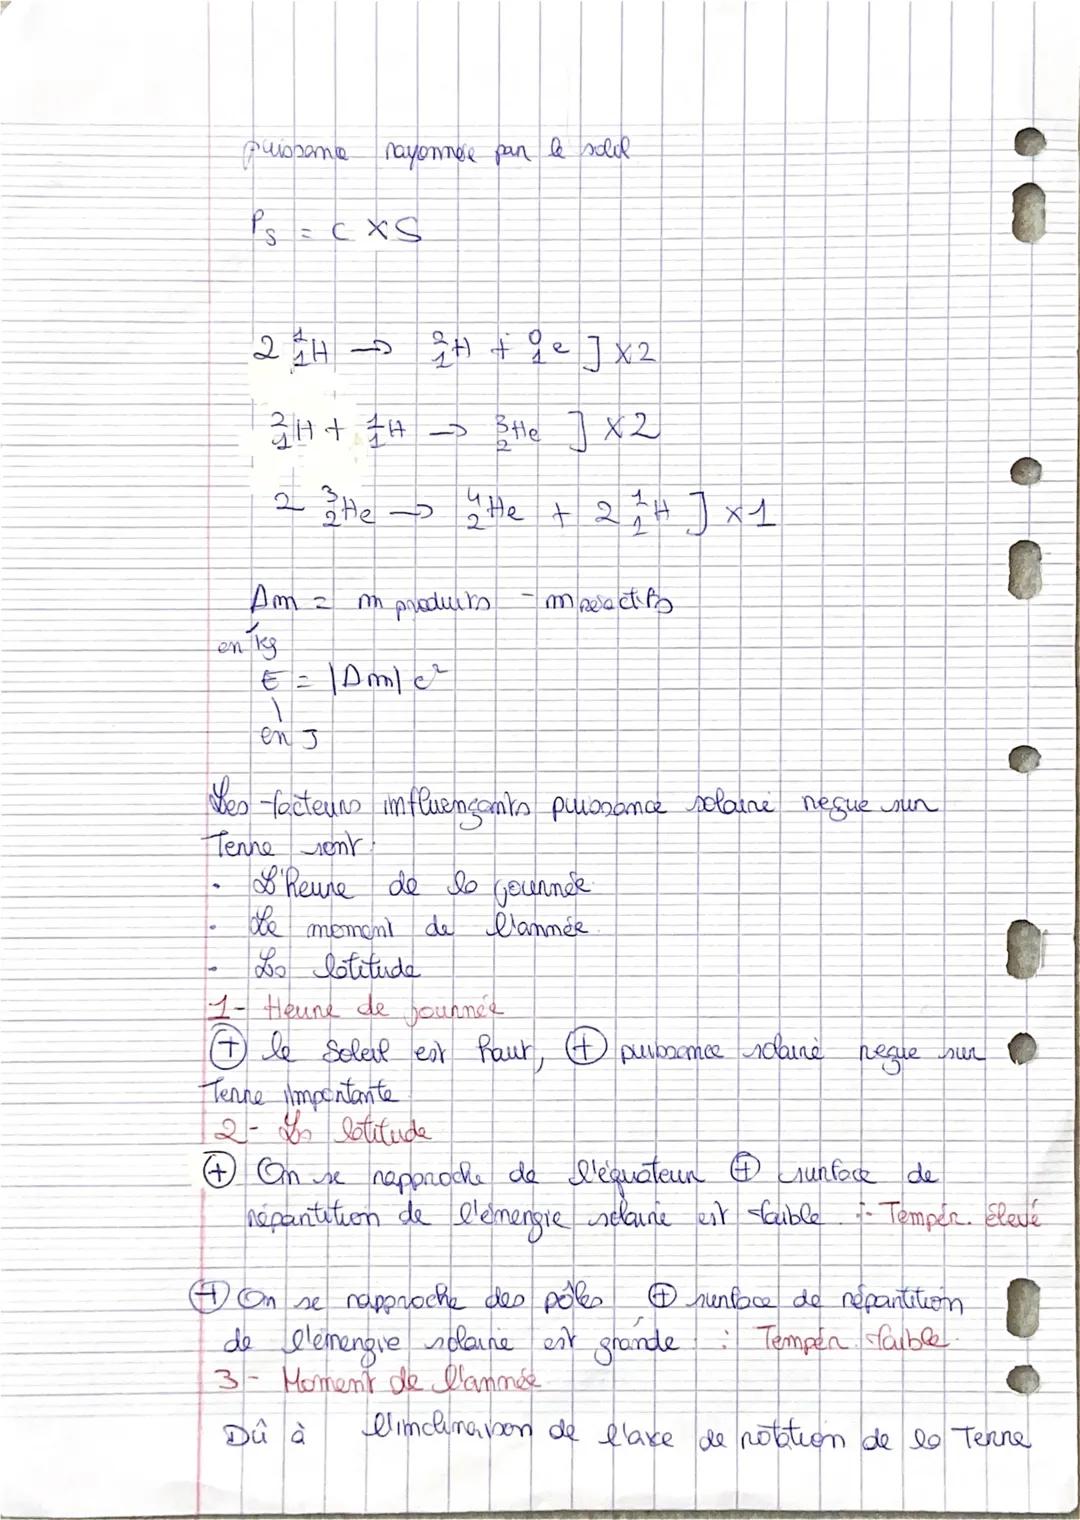 puissance rayonnée par le soleil
Ps = C × S
2 ¹₁H → ²₁H + ⁰₁e ] ×2
²₁H + ¹₁H → ³₂He ] ×2
2 ³₂He → ⁴₂He + 2 ¹₁H ] ×1
Δm = m produits - m réactifs
en kg
E = |Δm| c²
en J
Les facteurs influençants puissance solaire reçue sur
Terre sont :
• L'Heure de la journée.
• Le moment de l'année.
• La latitude
1- Heure de journée
⊕ le Soleil est haut, ⊕ puissance solaire reçue sur
Terre importante
2- La latitude
⊕ On se rapproche de l'équateur ⊕ surface de
répartition de l'énergie solaire est faible ∴ Tempér. élevé
⊕ On se rapproche des pôles ⊕ surface de répartition
de l'énergie solaire est grande : Tempér. faible.
3- Moment de l'année
Dû à l'inclinaison de l'axe de rotation de la Terre